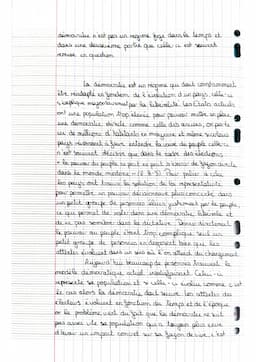 démocratie n'est pas un régime figé dans le temps et
dans une deuxième partie que celle-ci est souvent
remise en question.
La démocratie est un régime qui doit constamment
être réadapté en fonction de l'évolution d'un pays, celle-ci
s'explique majoritairement par la . Les Etats actuels
ont une population trop élevée pour pouvoir mettre en place
une démocratie directe comme celle des , on parle
de millions d'habitants en moyenne et même certains
pays réussissent à faire entendre la voix du peuple celle-ci
n'est souvent que dans le cadre des élections
« le pouvoir du peuple ne peut
dans le monde moderne » . Pour à cela
les pays ont trouvé la solution de la représentativité
pour permettre un pouvoir décisionnaire plus concentré dans
un petit groupe de personnes élues justement par le peuple,
ce qui permet de rester dans une démocratie libérale et
de ne pas sombrer dans la dictature. Donner directement
le pouvoir au peuple serait trop compliqué seul un
petit groupe de personnes bien que les
évoluent dans un sens où l'on attend du changement.
Aujourd'hui beaucoup de personnes trouvent le
modèle démocratique actuel insatisfaisant. Celui-ci
représente sa population et si celle-ci évolue comme c'est
le cas alors la démocratie doit suivre. Les attentes des
électeurs évoluent en fonction du temps et de l'époque
or le problème vient du fait que la démocratie ne suit
pas assez vite sa population qui a toujours plus envie
d'avoir un impact concret sur sa façon de vivre, c'est